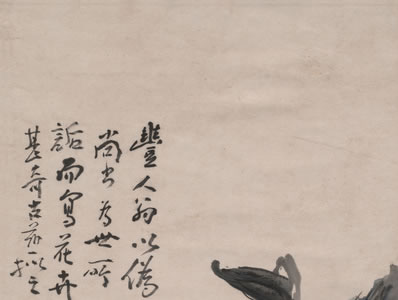 豐人翁以偽
尚書為世所
詬而寫花卉
甚奇古茲擬之